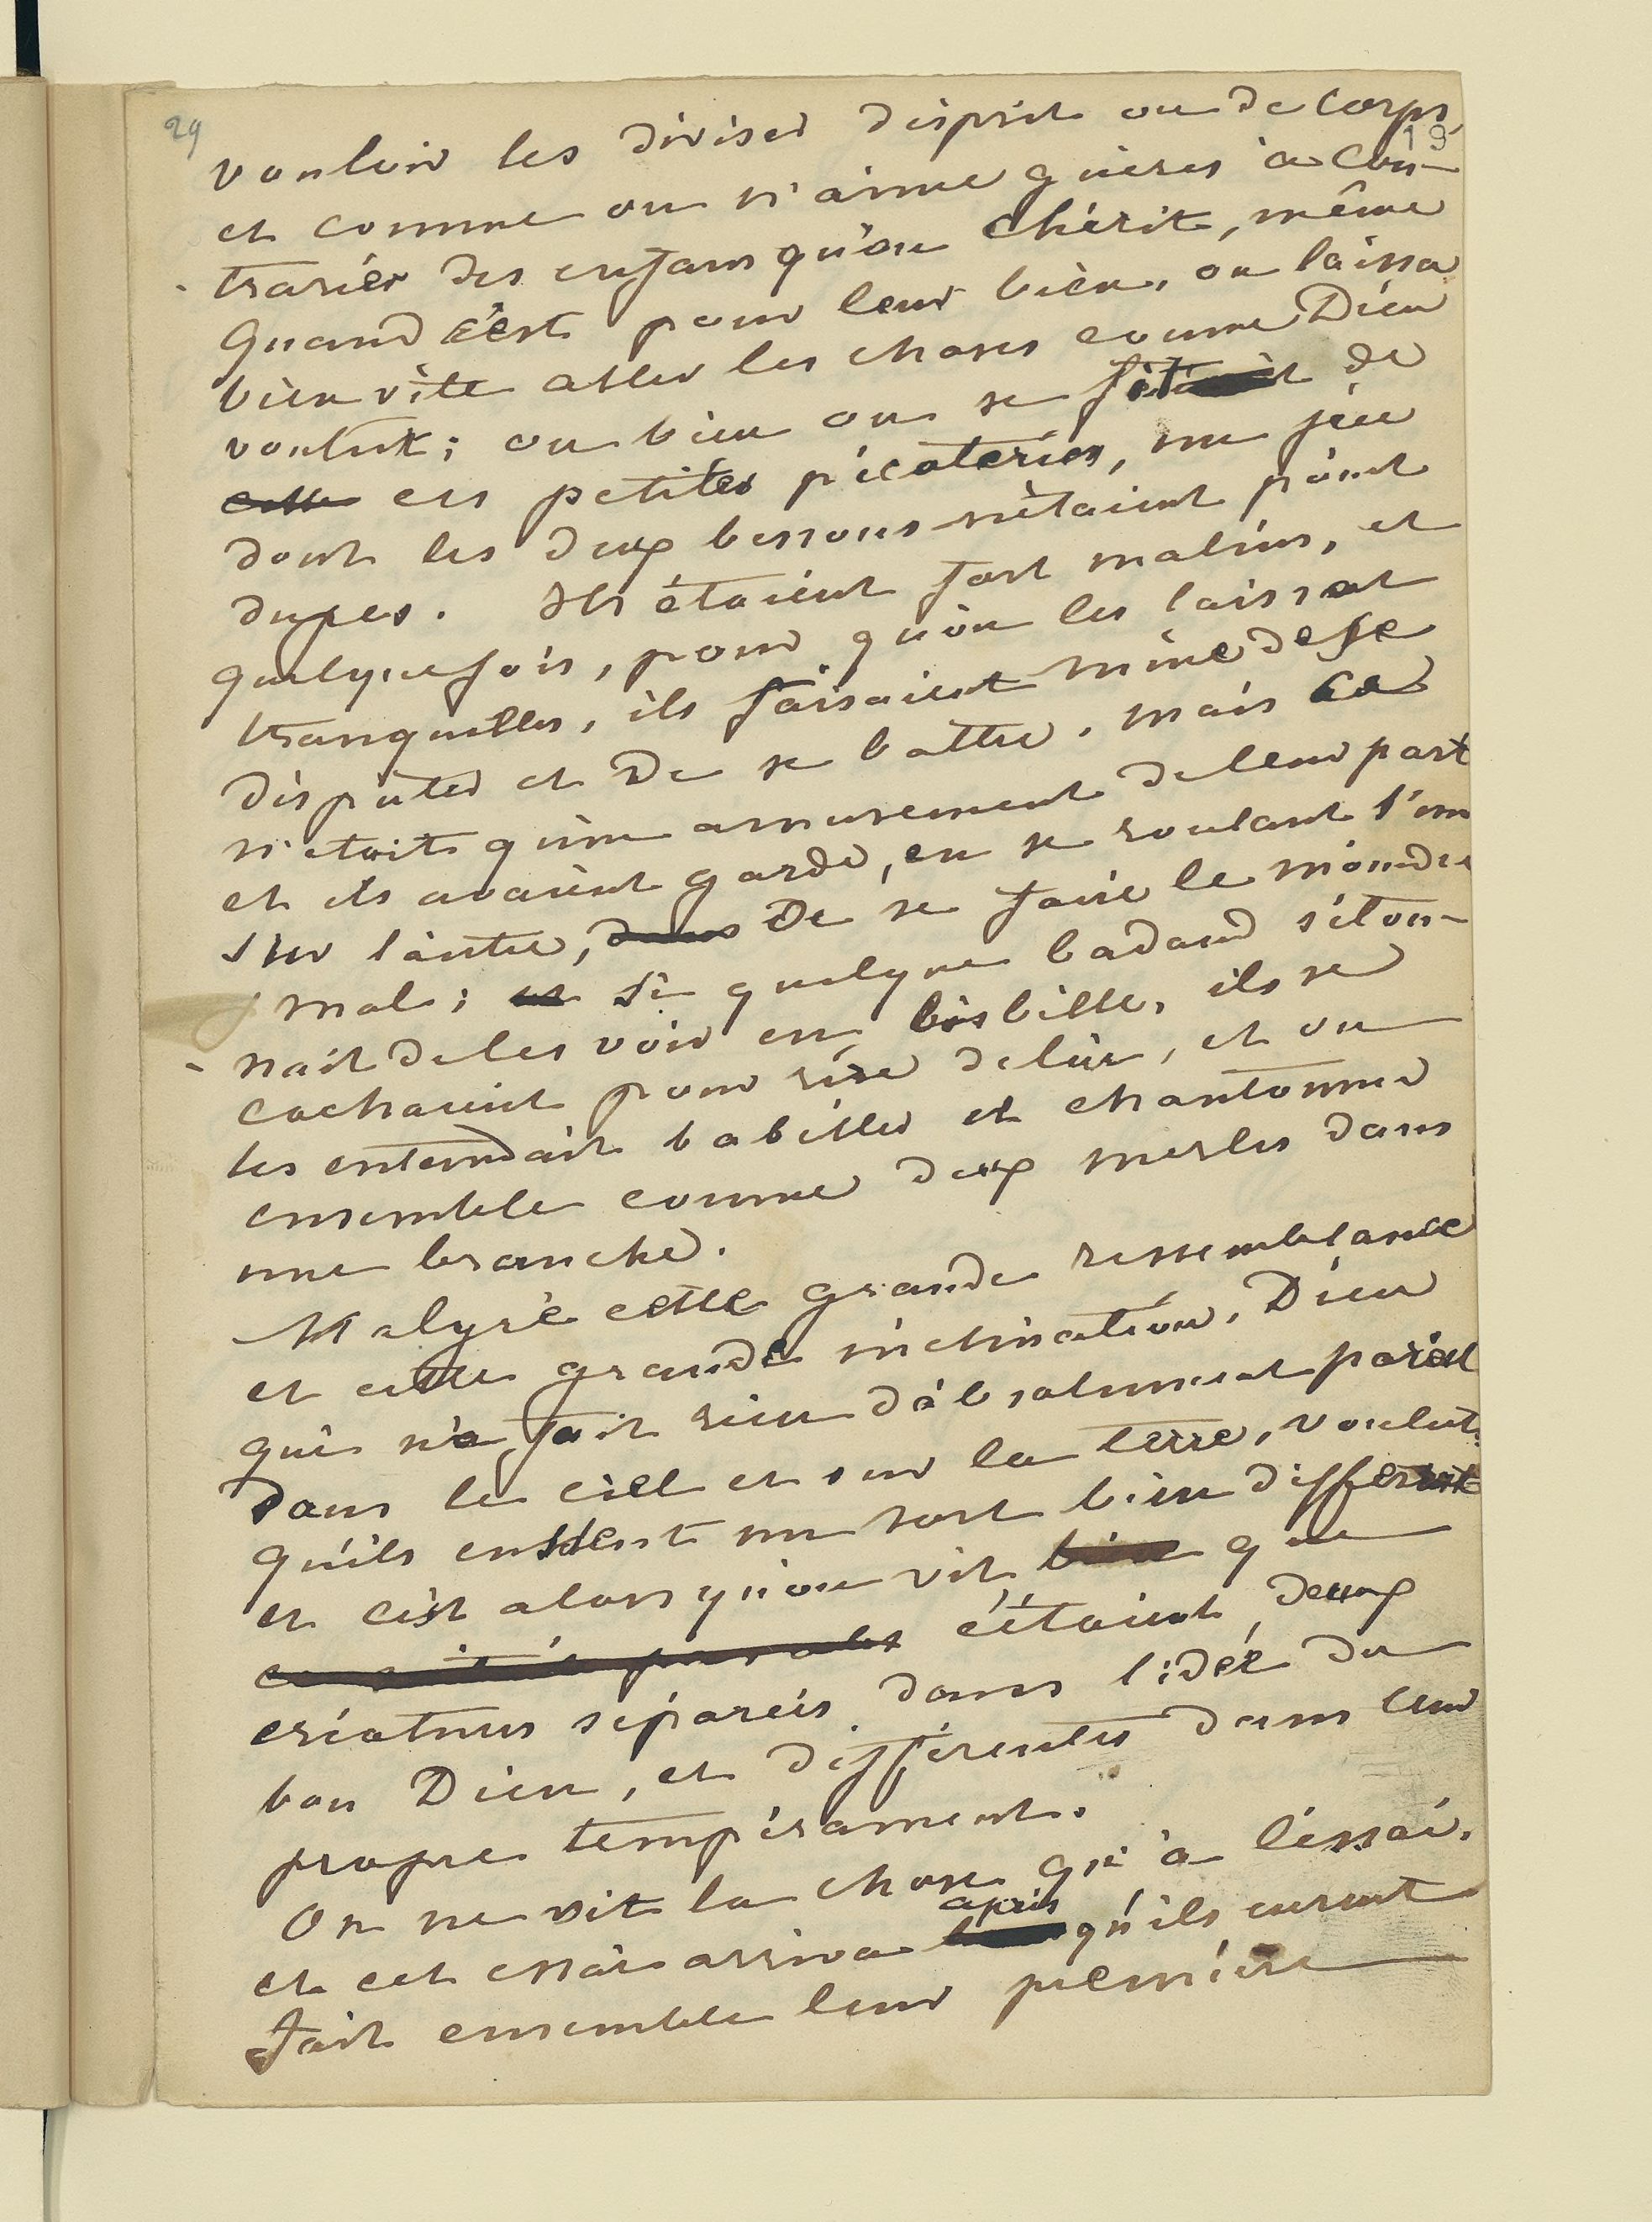 29
vouloir les diviser d'esprit ou de corps,
19
et comme on n'aime guères à con-
trarier des enfans qu'on chérit, même
quand c'est pour leur bien, on laissa
bien vite aller les choses comme Dieu
voulut; ou bien on se fit de
cette ces petites picoteries, un jeu
dont les deux bessons n'étaient point
dupes. Ils étaient fort malins, et
quelquefois, pour qu'on les laissat
tranquilles, ils faisaient mine de se
disputer et de se battre, mais ce
n'etait qu'un amusement de leur part
et ils avaient garde, en se roulant l'un
sur l'autre, dans de se faire le moindre
mal; et si quelque badaud s'éton-
nait de les voir en bisbille, ils se
cachaient pour rire de lui, et on
les entendait babiller et chantonner
ensemble comme deux merles dans
une branche.
Malgré cette grande ressemblance
et cette grande inclination, Dieu
qui n'a fait rien d'absolument pareil
dans le ciel et sur la terre, voulut
qu'ils eussent un sort bien différent
et c'est alors qu'on vit bien que
c'étaient deux
créatures séparées dans l'idée du
bon Dieu, et différentes dans leur
propre tempérament.
On ne vit la chose qu'à l'essai,
après
et cet essai arriva qu'ils eurent
fait ensemble leur première